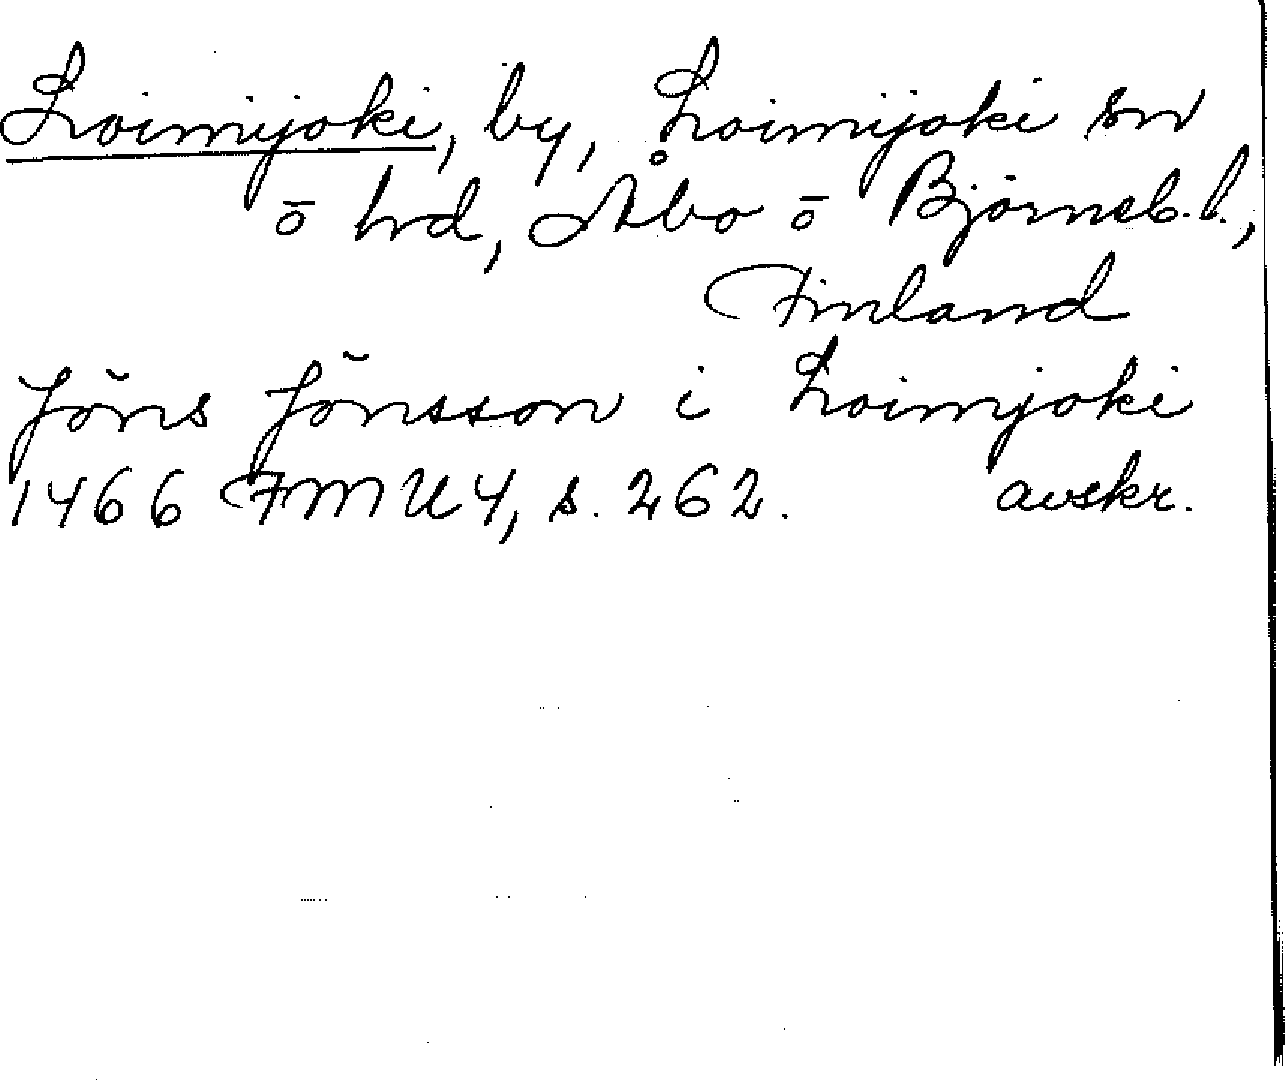 Loimijoki, by, Loimijoki sn
o hd, Åbo o Björneb. l.,
Finland
Jöns Jönsson i Loimjoki
1466 FMU 4, s. 262. avskr.